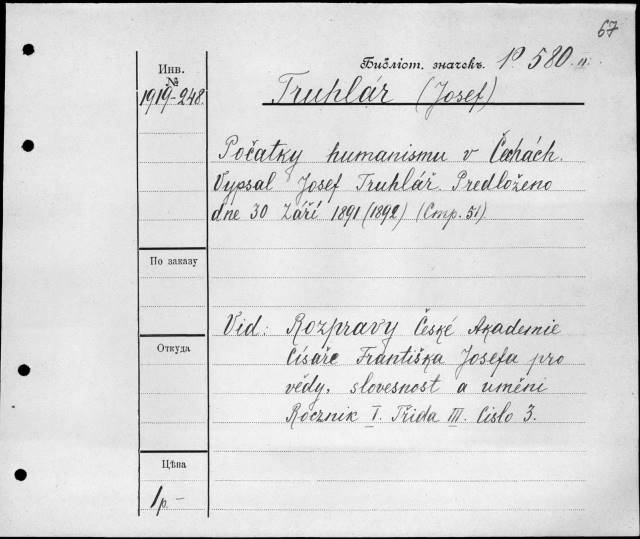 67
Библіот. значекъ. P 580 IV.
Инв.
№
1919-248.
Truhlár (Josef)
Počatky humanismu v Čechách.
Vypsal Josef Truhlář. Predloženo
dne 30 Září 1891 (1892) (Стр. 51)
По заказу
Vid: Rozpravy České Akademie
Откуда
Císáře Františka Josefa pro
vědy, slovesnost a uměni
Rocznik I. Třida III. Cislo 3.
Цѣна
1 р. -